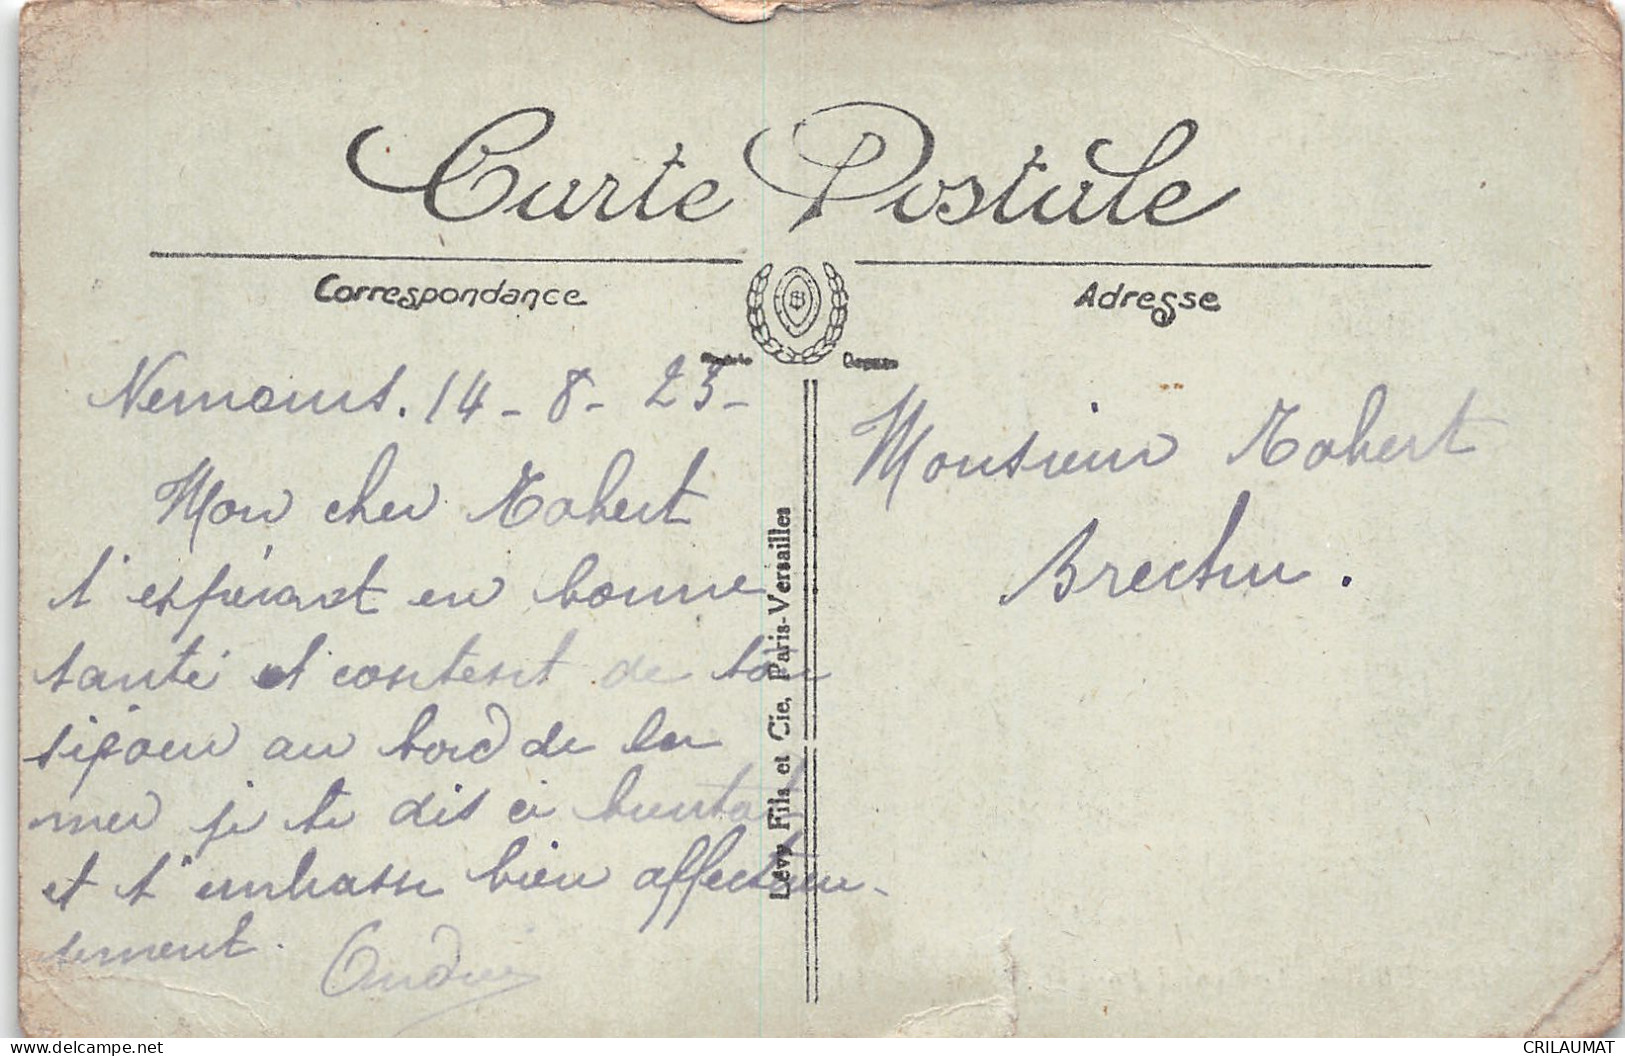 Carte Postale
Correspondance
Adresse
Nemours. 14 - 8 - 23 -
Mon cher Robert
t'espérant en bonne
santé et content de ton
séjour au bord de la
mer je te dis à bientôt
et t'embrasse bien affectueu-
sement.
André
Monsieur Robert
Lévy Fils et Cie, Paris-Versailles
delcampe.net
CRILAUMAT